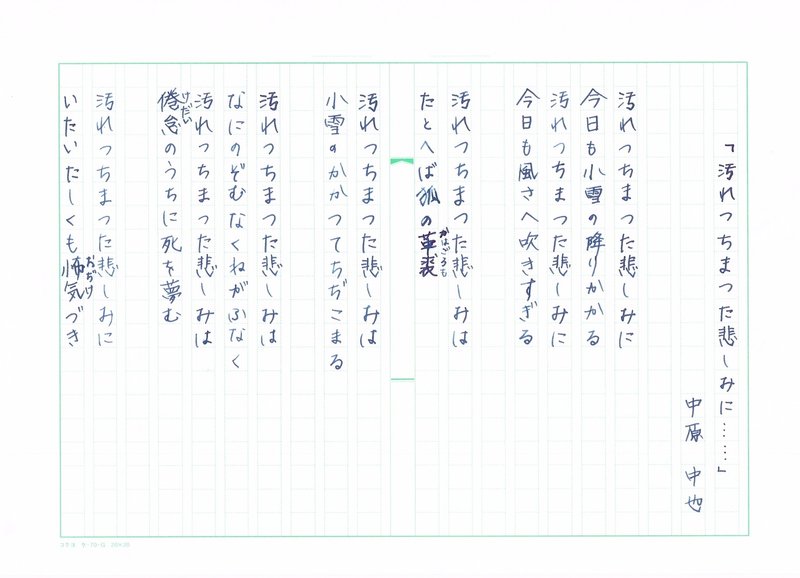 「汚れつちまつた悲しみに……」
中原 中也
汚れつちまつた悲しみに
今日も小雪の降りかかる
汚れつちまつた悲しみに
今日も風さへ吹きすぎる
汚れつちまつた悲しみは
かはごろも
たとへば狐の革裘
汚れつちまつた悲しみは
小雪のかかつてちぢこまる
汚れつちまつた悲しみは
なにのぞむなくねがふなく
汚れつちまつた悲しみは
けだい
倦怠のうちに死を夢む
汚れつちまつた悲しみに
おぢけ
いたいたしくも怖気づき
コクヨ ケ-70-G 20×20